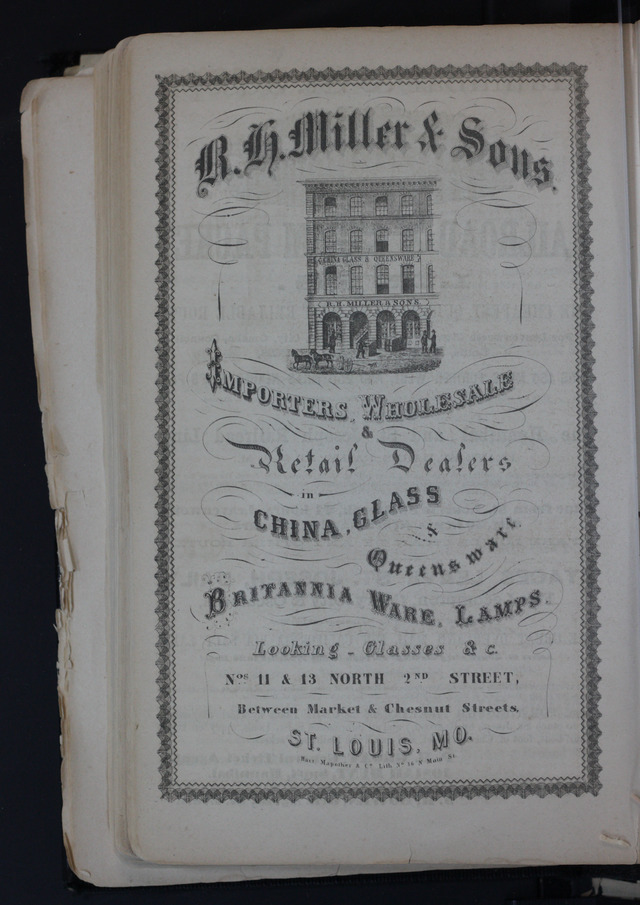 R. H. Miller & Sons.
CHINA GLASS & QUEENSWARE
R. H. MILLER & SONS
IMPORTERS, WHOLESALE
&
Retail Dealers
in
CHINA, GLASS
&
Queensware
BRITANNIA WARE, LAMPS.
Looking-Glasses &c.
Nos 11 & 13 NORTH 2ND STREET,
Between Market & Chesnut Streets,
ST. LOUIS, MO.
Lith. No 16 N Main St.